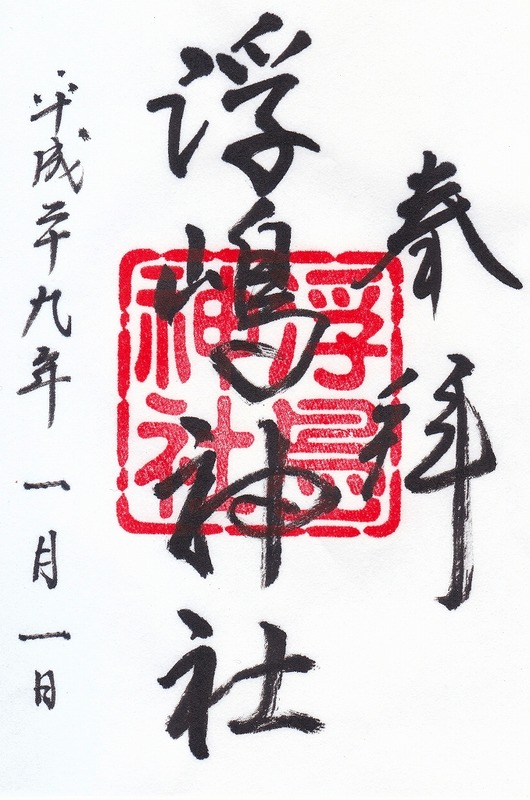 奉拝
浮嶋神社
浮島
神社
平成二十九年一月一日